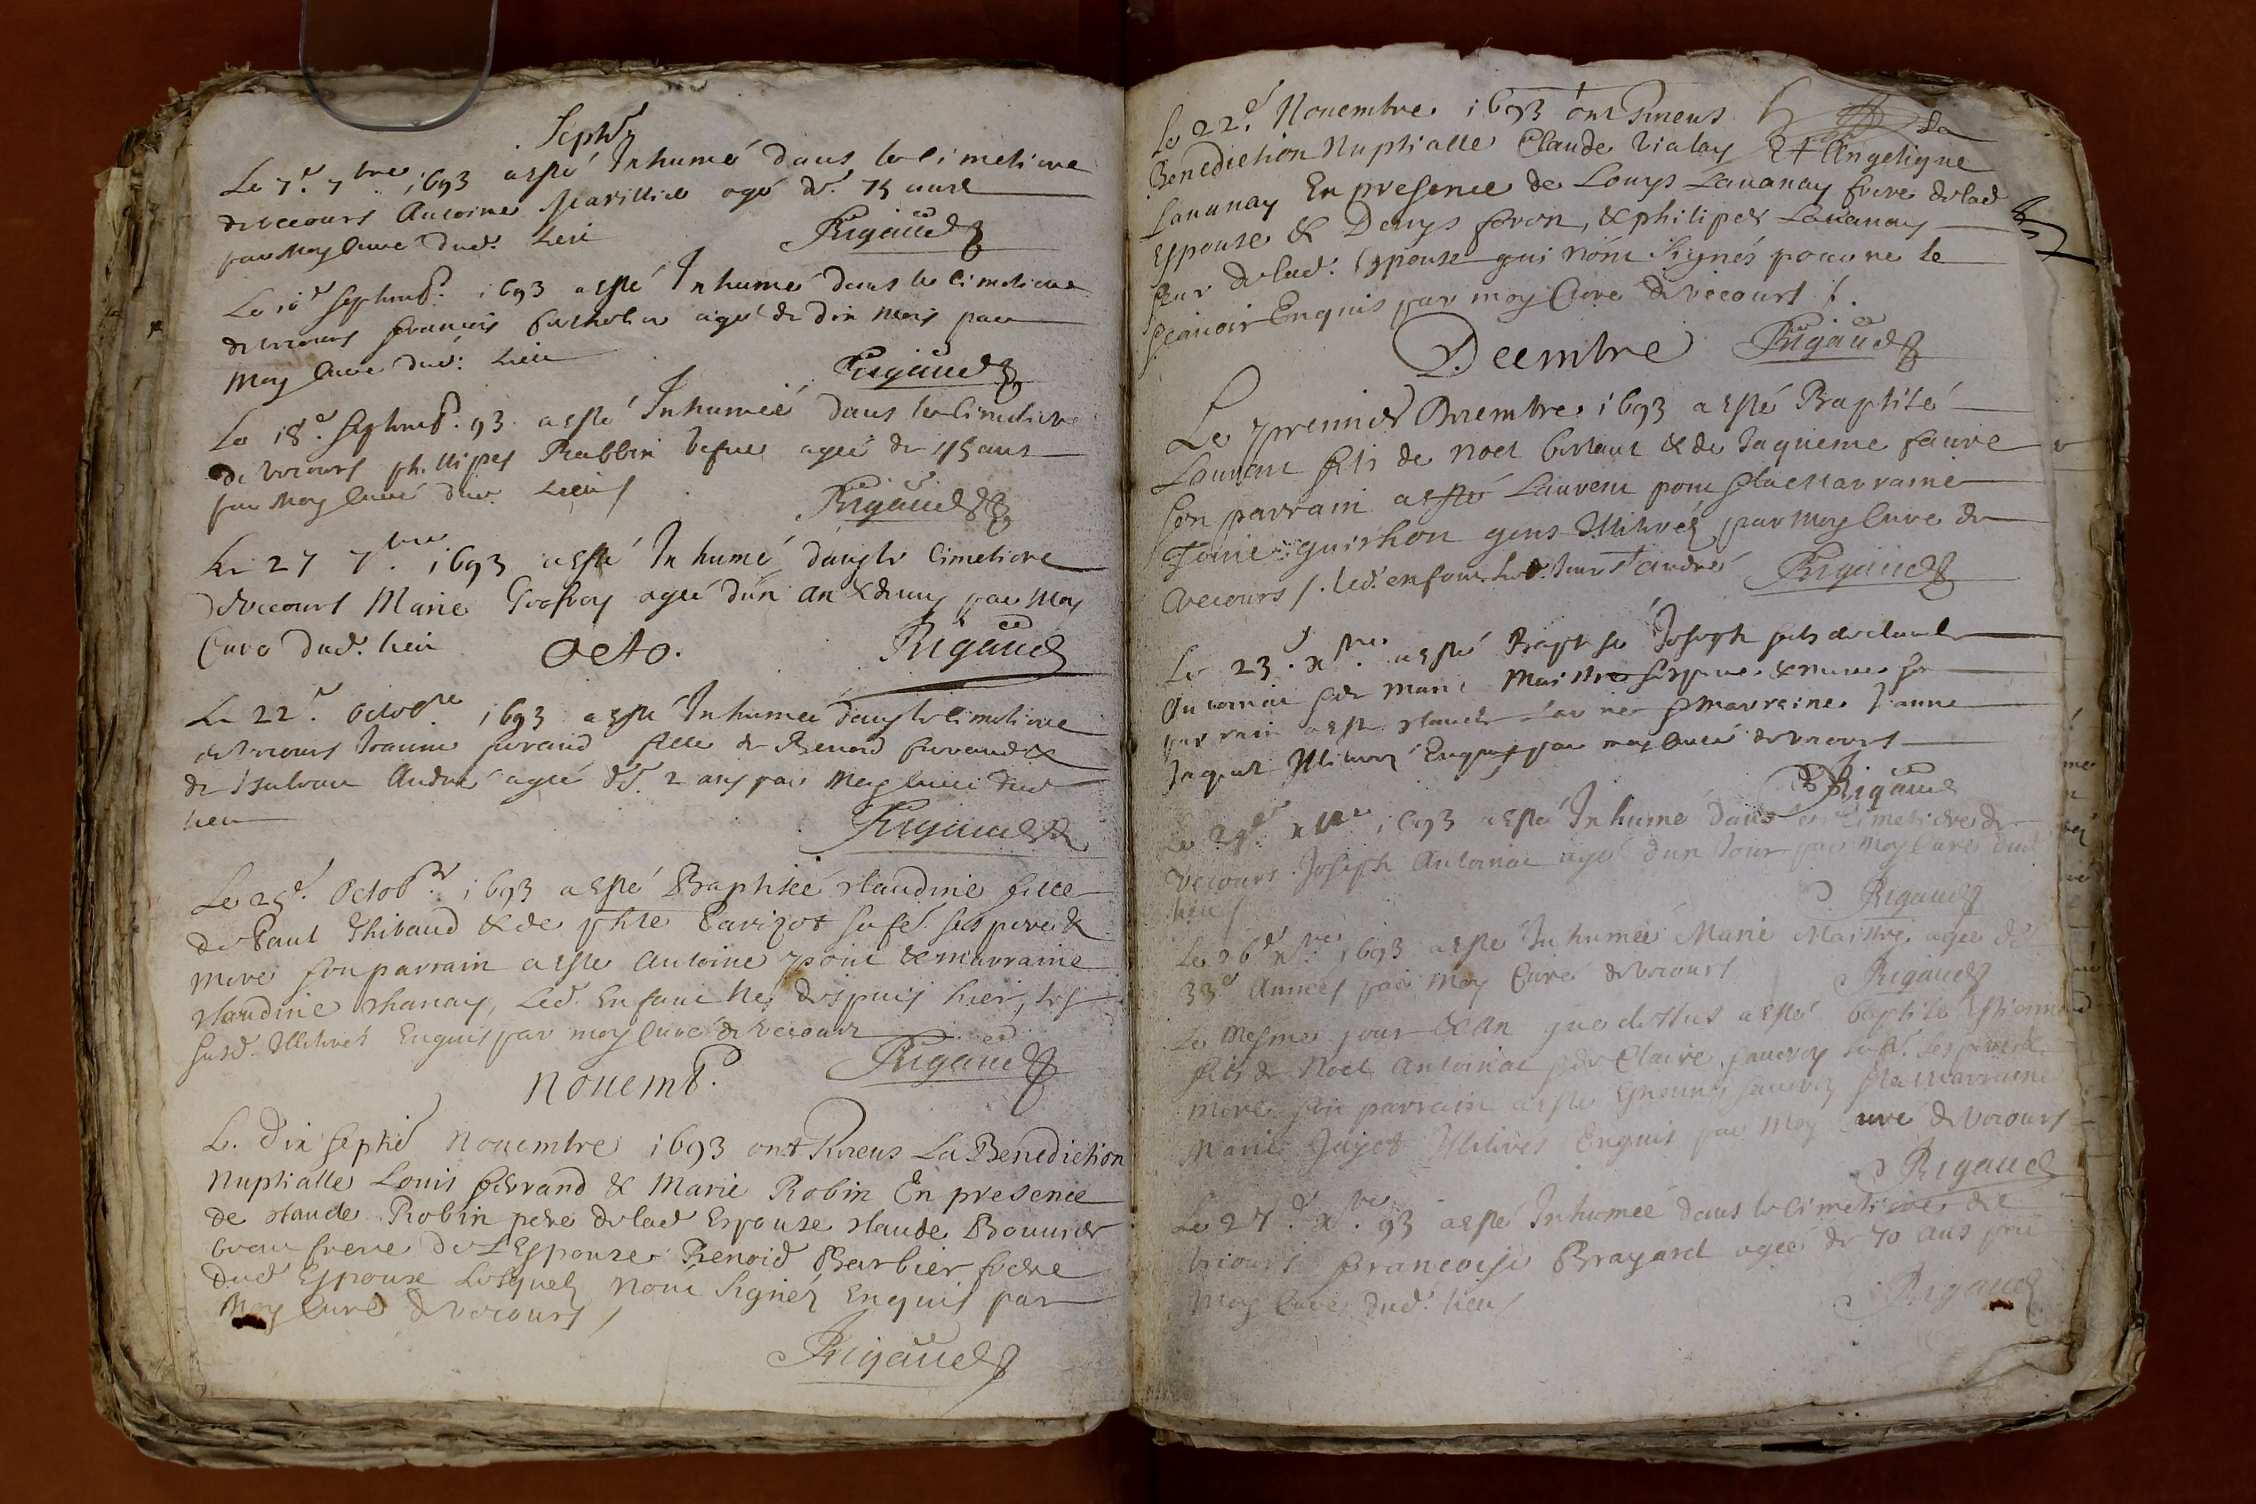 Septb
Le 7e 7bre 1693 a esté Inhumé dans le cimetiere
de vecours Antoine agé de 75 ans
par Moy Curé dud. Lieu
Rigaud
Le 10e Septemb. 1693 a esté Inhumé dans le cimetiere
de vecours francois agé de dix mois par
Moy Curé dud: Lieu
Rigaud
Le 18e Septemb. 93 a esté Inhumée dans le cimetiere
de vecours phillipes Rabbin vefue agée de 45 ans
par Moy Curé dud. Lieu
Rigaud
Le 27 7bre 1693 a esté Inhumé dans le cimetiere
de vecours Marie agée d'un an & demy par Moy
Curé dud. lieu
Rigaud
Octo.
Le 22e Octobre 1693 a esté Inhumée dans le cimetiere
de vecours Jeanne ferrand fille de Benoid ferrand &
de André agée de 2 ans par Moy Curé dud
lieu
Rigaud
Le 25e Octob. 1693 a esté Baptisée Claudine fille
de Paul Thibaud & de phle Parizot sa fe. ses pere &
mere son parrain a esté Antoine & marraine
Claudine Chanay, Led. Enfant né despuis hier, les
susd. Illitrés Enquis par moy Curé de vecours
Rigaud
Nouemb.
Le dix septie Nouembre 1693 ont Receus La Benediction
Nuptialle Louis ferrand & Marie Robin En presence
de Claude Robin pere de lad Espouse Claude Bouuier
beau frere de L'Espouse Benoid Barbier
dud Espoux Lesquels n'ont signés Enquis par
Moy Curé de vecours
Rigaud
Le 22e Nouembre 1693 ont Receus la
Benediction Nuptialle Claude Vialay Et Angelique
Lauanay En presence de Louys Lauanay frere de lad
Espouse & Denys , & philipes Lauanay
seur de lad. Espouse qui n'ont signés pour ne le
scauoir Enquis par moy Cure de vecours
Rigaud
Decembre
Le premier Decembre 1693 a esté Baptisé
Laurent fils de Noel & de Jaqueme faure
son parrain a esté Laurent & la Marraine
guichon gens Illitrés par Moy Cure de
vecours led. enfant St André
Rigaud
Le 23 xbre a esté Baptisé Joseph fils de Claude
Antoinat & de Marie Maistre ses pere & mere son
parrain a esté Claude & marraine Jeanne
Jaquet Illitrés Enquis par moy Curé de vecours
Rigaud
Le xbre 1693 a esté Inhumé dans le cimetiere de
vecours Joseph Antoinat agé d'un Jour par Moy Curé dud
lieu
Rigaud
Le 26e xbre 1693 a esté Inhumée Marie Maistre agée de
33e Années par Moy Curé de vecours
Rigaud
Le Mesme jour & An que dessus a esté baptisé Estienne
fils de Noel Antoinat & de Claire sa fe. ses pere &
mere son parrain a esté & la Marraine
Marie Jayet Illitrés Enquis par Moy Curé de vecours
Rigaud
Le 27e xbre 93 a esté Inhumée dans le cimetiere de
vecours francoise Brayard agée de 70 ans par
Moy Curé dud. lieu
Rigaud